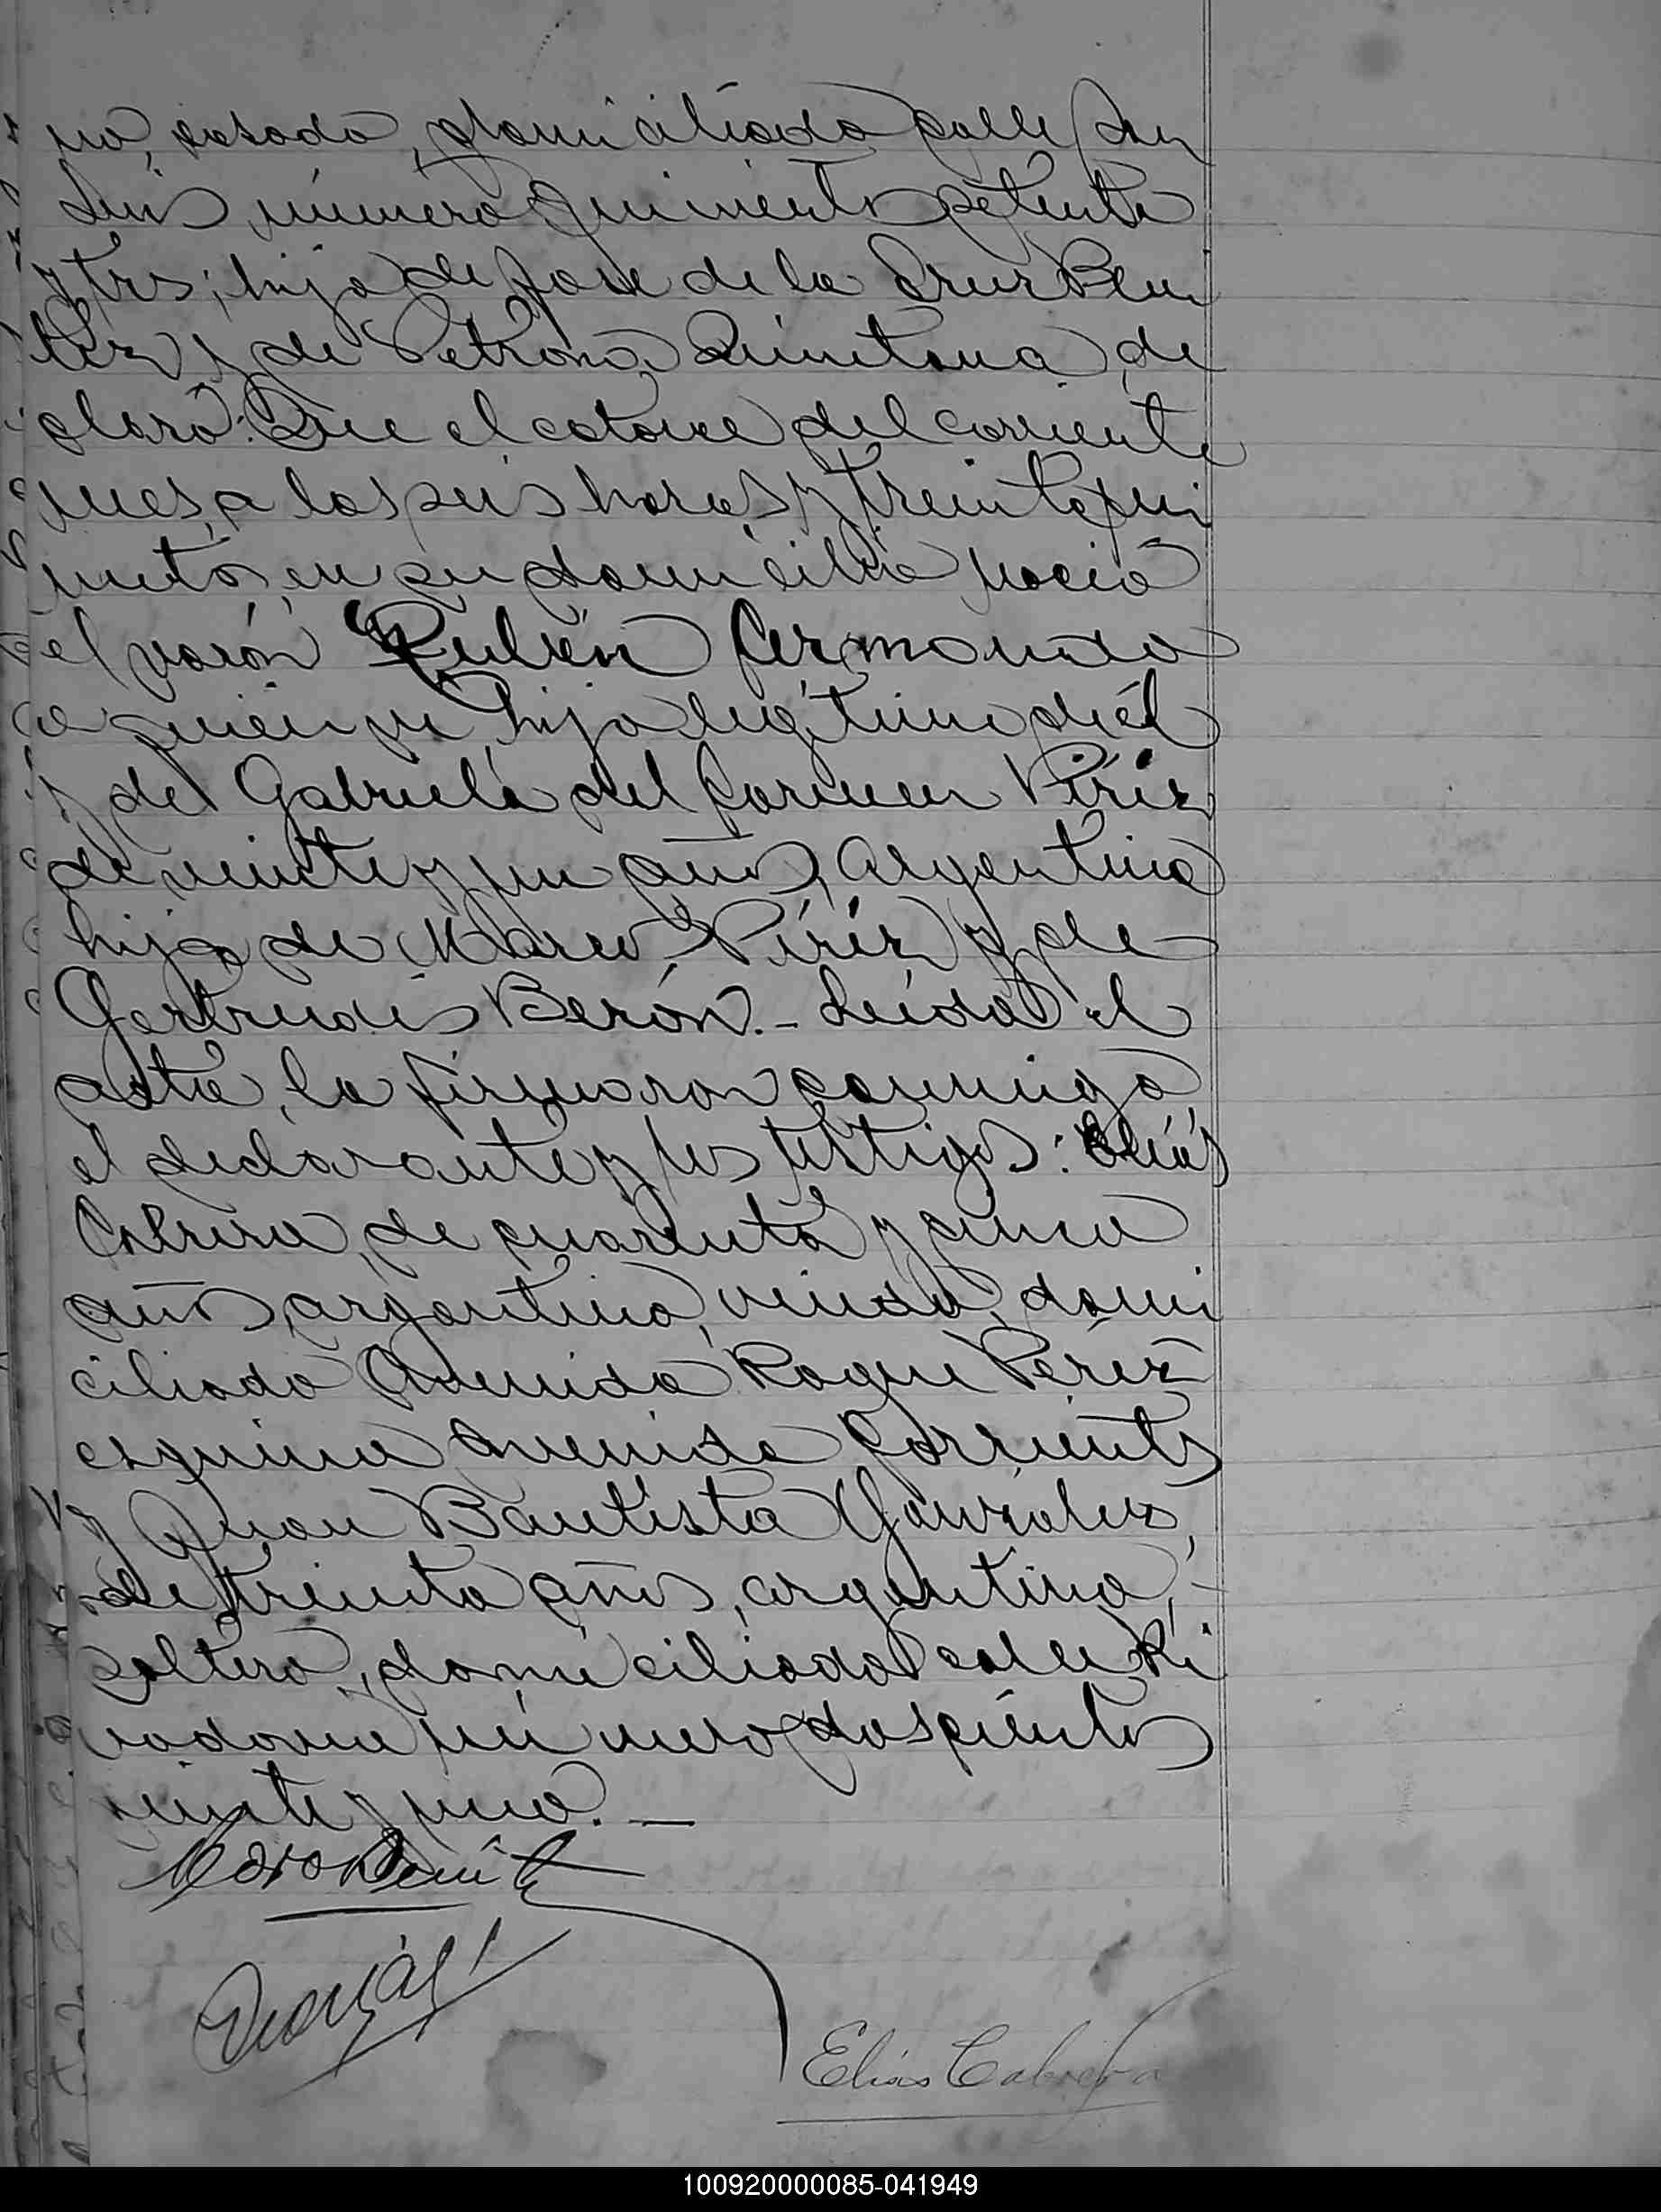 no, casado, domiciliado calle San
Luis número quinientos setenta
y tres; hijo de José de la Cruz Bení
tez y de Petrona Quintana, de
claró: Que el catorce del corriente
mes, a las seis horas y treinta mi
nutos, en su domicilio nació
el varón Rubén Armando
a quien ve, hijo legítimo de él
y de Gabriela del Carmen Píriz
de veinte y un años, argentina
hija de Marcos Píriz y de
Gertrudis Berón.- Leída el
acta, la firmaron conmigo
el declarante y los testigos: Elías
Cabrera, de cuarenta y cinco
años, argentino, viudo, domi
ciliado Avenida Roque Pérez
esquina Avenida Corrientes
y Juan Bautista González,
de treinta años, argentino,-
soltero, domiciliado calle Ri
vadavia número doscientos
veinte y uno.-
Benítez
Elías Cabrera
100920000085-041949